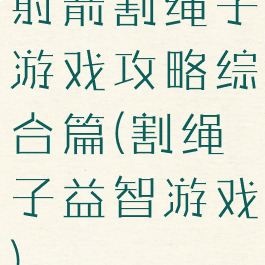 射箭割绳子
游戏攻略综
合篇(割绳
子益智游戏
)